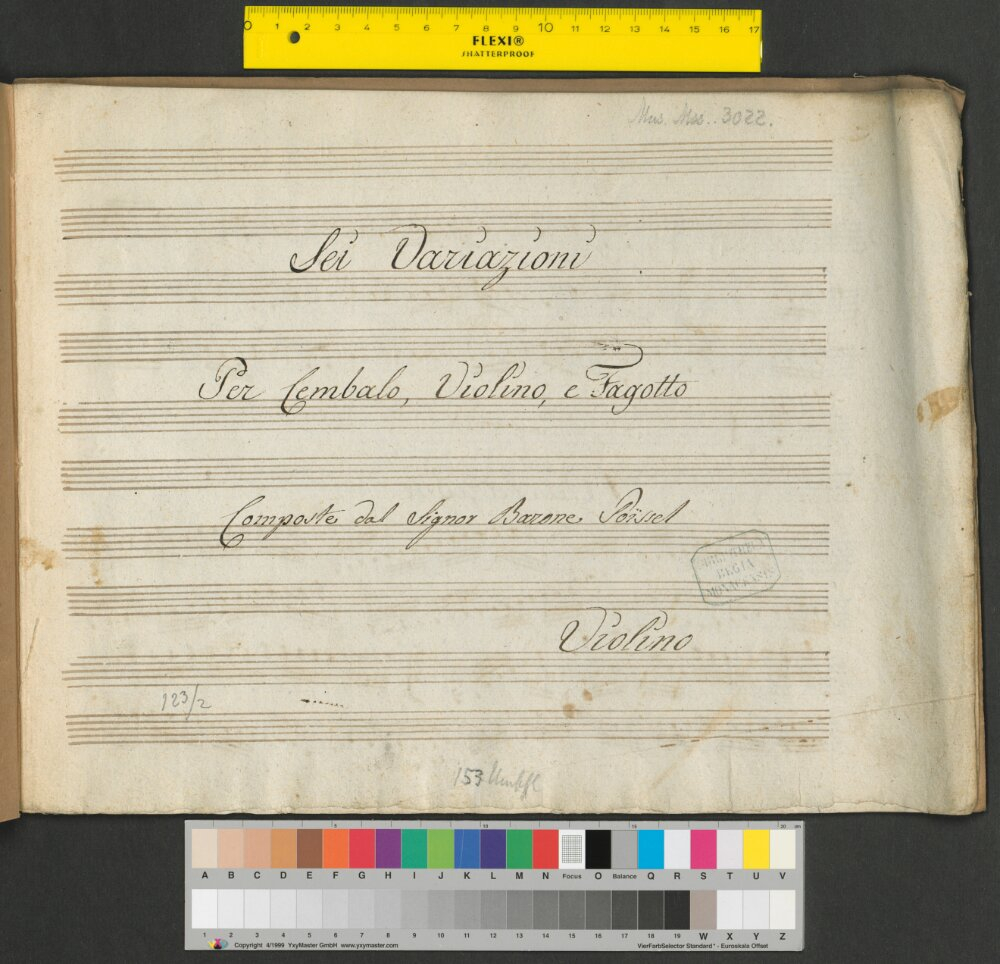 0 1 2 3 4 5 6 7 8 9 10 11 12 13 14 15 16 17
FLEXI®
SHATTERPROOF
Mus. Mss. 3022.
Sei Variazioni
Per Cembalo, Violino, e Fagotto
Composte dal Signor Barone Poissel
REGIA
MONACENSIS
Violino
123/2
153
5 10 15 20 cm
A B C D E F G H I J K L M N Focus O Balance Q R S T U V
1 2 3 4 5 6 7 8 9 10 11 12 13 14 15 16 17 18 19 W X Y Z
Copyright 4/1999 YxyMaster GmbH www.yxymaster.com
VierFarbSelector Standard* - Euroskala Offset